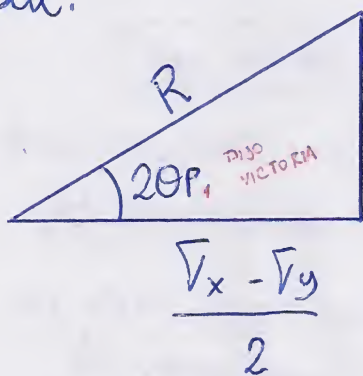 R
2θP,
DIJO
VICTORIA
σx - σy
2